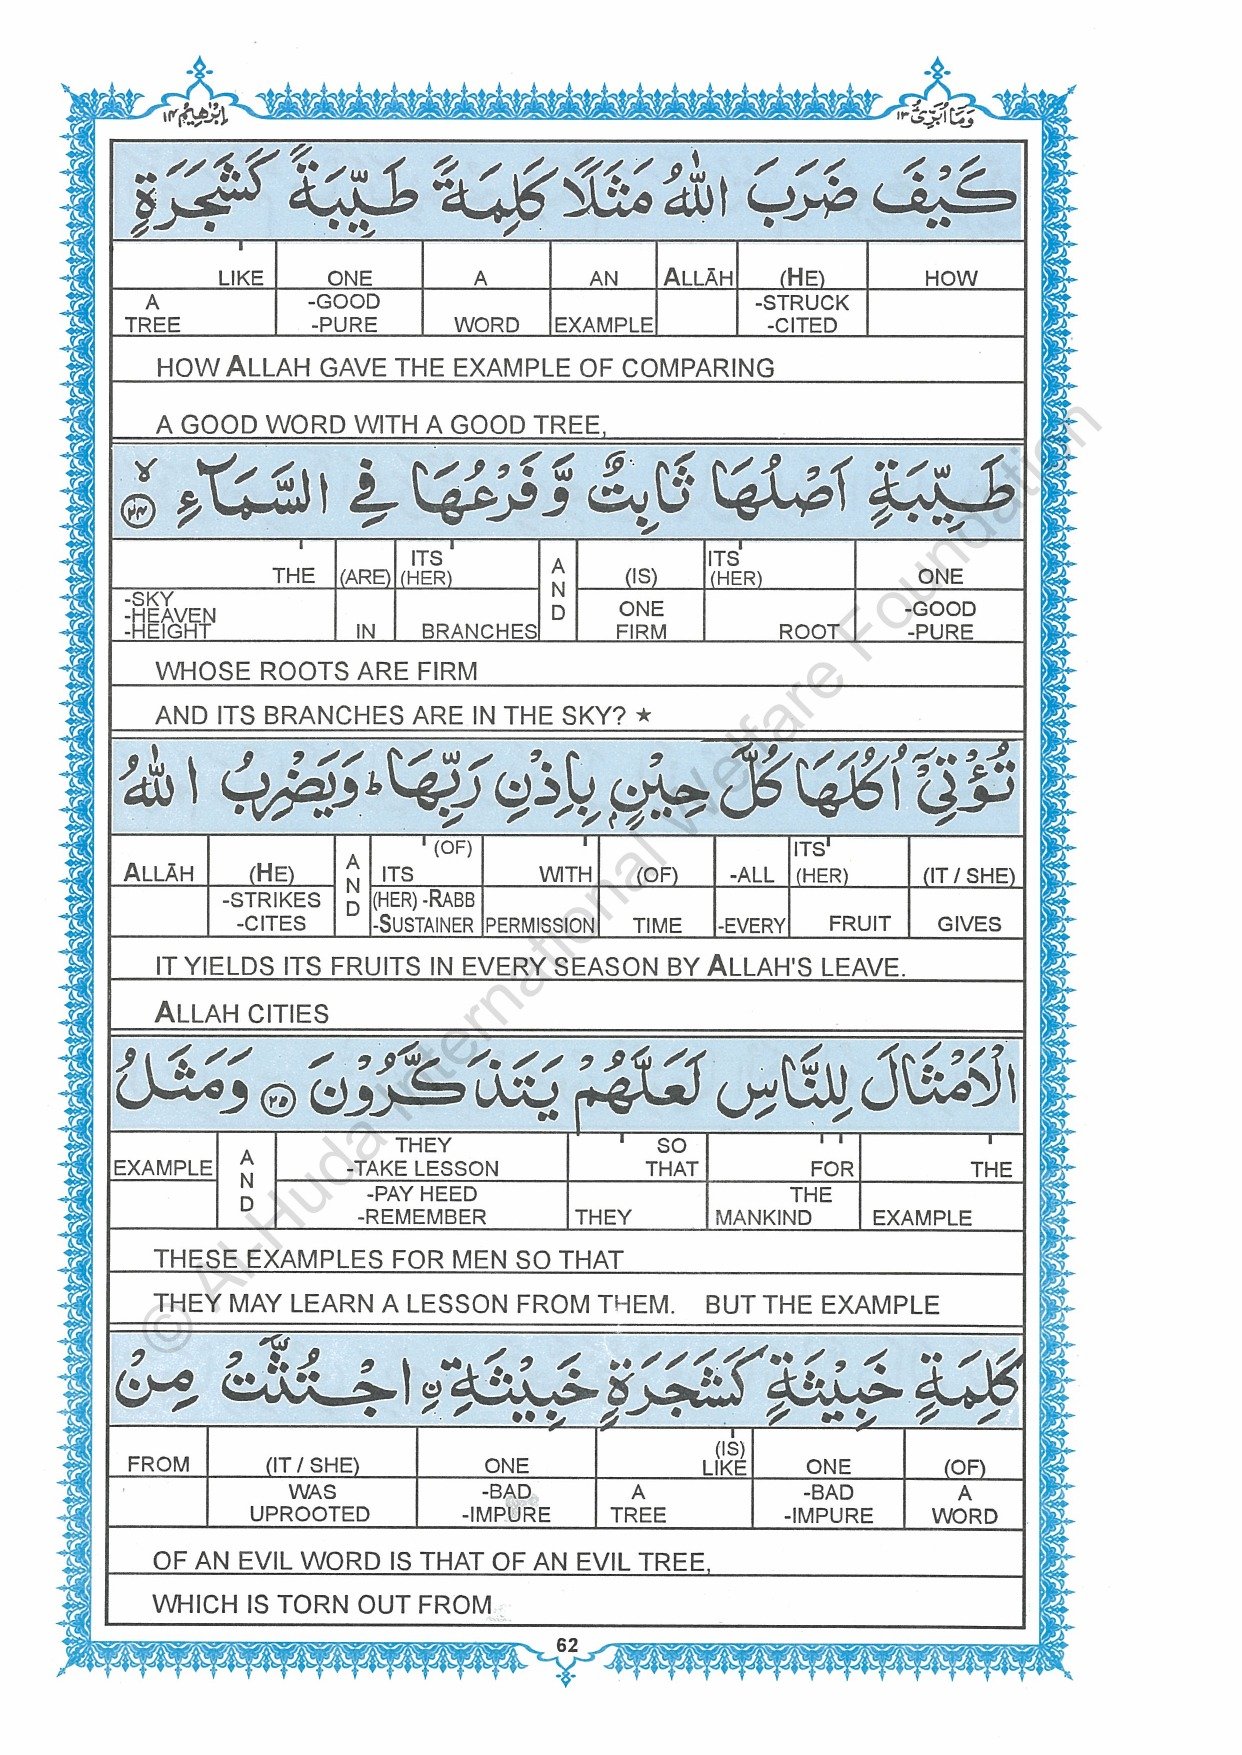 اِبْرٰهِیْمُ ١٤
وَمَاۤ اُبَرِّئُ ١٣
كَیْفَ ضَرَبَ اللّٰهُ مَثَلًا كَلِمَةً طَیِّبَةً كَشَجَرَةٍ
LIKE ONE A AN ALLĀH (HE) HOW
A TREE -GOOD -PURE WORD EXAMPLE -STRUCK -CITED
HOW ALLAH GAVE THE EXAMPLE OF COMPARING
A GOOD WORD WITH A GOOD TREE,
طَیِّبَةٍ اَصْلُهَا ثَابِتٌ وَّفَرْعُهَا فِی السَّمَآءِ ۙ ﴿٢٤﴾
THE (ARE) ITS (HER) AND (IS) ITS (HER) ONE
-SKY -HEAVEN -HEIGHT IN BRANCHES ONE FIRM ROOT -GOOD -PURE
WHOSE ROOTS ARE FIRM
AND ITS BRANCHES ARE IN THE SKY? ★
تُؤْتِیْۤ اُكُلَهَا كُلَّ حِیْنٍۭ بِاِذْنِ رَبِّهَا ؕ وَیَضْرِبُ اللّٰهُ
ALLĀH (HE) AND ITS (OF) WITH (OF) -ALL ITS (HER) (IT / SHE)
-STRIKES -CITES (HER) -RABB -SUSTAINER PERMISSION TIME -EVERY FRUIT GIVES
IT YIELDS ITS FRUITS IN EVERY SEASON BY ALLAH'S LEAVE.
ALLAH CITIES
الْاَمْثَالَ لِلنَّاسِ لَعَلَّهُمْ یَتَذَكَّرُوْنَ ﴿٢٥﴾ وَمَثَلُ
EXAMPLE AND THEY -TAKE LESSON SO THAT FOR THE
-PAY HEED -REMEMBER THEY THE MANKIND EXAMPLE
THESE EXAMPLES FOR MEN SO THAT
THEY MAY LEARN A LESSON FROM THEM. BUT THE EXAMPLE
كَلِمَةٍ خَبِیْثَةٍ كَشَجَرَةٍ خَبِیْثَةِ ࣙاجْتُثَّتْ مِنْ
FROM (IT / SHE) ONE (IS) LIKE ONE (OF)
WAS UPROOTED -BAD -IMPURE A TREE -BAD -IMPURE A WORD
OF AN EVIL WORD IS THAT OF AN EVIL TREE,
WHICH IS TORN OUT FROM
62
© Al-Huda International Welfare Foundation